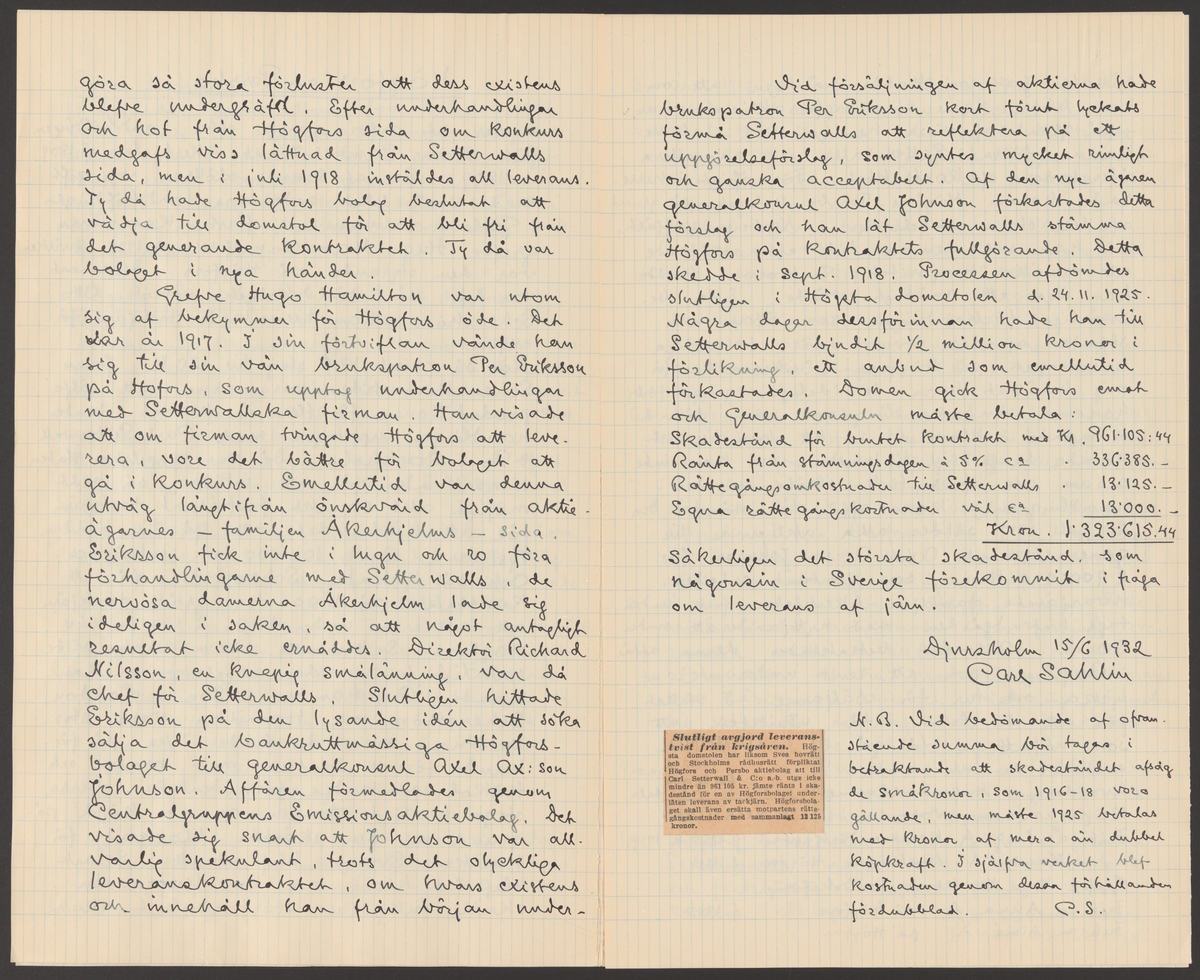 göra så stora förluster att dess existens
blefve undergräfd. Efter underhandlingar
och hot från Högfors sida om konkurs
medgafs viss lättnad från Setterwalls
sida, men i juli 1918 inställdes all leverans.
Ty då hade Högfors bolag beslutat att
vädja till domstol för att bli fri från
det generande kontraktet. Ty då var
bolaget i nya händer.
Grefve Hugo Hamilton var utom
sig af bekymmer för Högfors öde. Det
var år 1917. I sin förtviflan vände han
sig till sin vän brukspatron Per Eriksson
på Hofors, som upptog underhandlingar
med Setterwallska firman. Han visade
att om firman tvingade Högfors att leve-
rera, vore det bättre för bolaget att
gå i konkurs. Emellertid var denna
utväg långtifrån önskvärd från aktie-
ägarnes – familjen Åkerhjelms – sida.
Eriksson fick inte i lugn och ro föra
förhandlingarne med Setterwalls, de
nervösa damerna Åkerhjelm lade sig
ideligen i saken, så att något antagligt
resultat icke ernåddes. Direktör Richard
Nilsson, en knepig smålänning, var då
chef för Setterwalls. Slutligen hittade
Eriksson på den lysande idén att söka
sälja det bankruttmässiga Högfors-
bolaget till generalkonsul Axel Ax:son
Johnson. Affären förmedlades genom
Centralgruppens Emissionsaktiebolag. Det
visade sig snart att Johnson var all-
varlig spekulant, trots det olyckliga
leveranskontraktet, om hvars existens
och innehåll han från början under-
Vid försäljningen af aktierna hade
brukspatron Per Eriksson kort förut lyckats
förmå Setterwalls att reflektera på ett
uppgörelseförslag, som syntes mycket rimligt
och ganska acceptabelt. Af den nye ägaren
generalkonsul Axel Johnson förkastades detta
förslag och han lät Setterwalls stämma
Högfors på kontraktets fullgörande. Detta
skedde i Sept. 1918. Processen afdömdes
slutligen i Högsta domstolen d. 24.11. 1925.
Några dagar dessförinnan hade han till
Setterwalls bjudit 1/2 million kronor i
förlikning, ett anbud som emellertid
förkastades. Domen gick Högfors emot
och Generalkonsuln måste betala:
Skadestånd för brutet kontrakt med Kr. 961.105:44
Ränta från stämningsdagen à 5% ca . 336.385.–
Rättegångsomkostnader till Setterwalls . 13.125.–
Egna rättegångskostnader väl ca 13.000.–
Kron. 1.323.615.44
Säkerligen det största skadestånd, som
någonsin i Sverige förekommit i fråga
om leverans af järn.
Djursholm 15/6 1932
Carl Sahlin
N.B. Vid bedömande af ofvan-
stående summa bör tagas i
betraktande att skadeståndet afsåg
de småkronor, som 1916–18 voro
gällande, men måste 1925 betalas
med kronor af mera än dubbel
köpkraft. I själfva verket blef
kostnaden genom dessa förhållanden
fördubblad. C.S.
Slutligt avgjord leverans-
tvist från krigsåren. Hög-
sta domstolen har liksom Svea hovrätt
och Stockholms rådhusrätt förpliktat
Högfors och Persbo aktiebolag att till
Carl Setterwall & C:o a.-b. utge icke
mindre än 961 105 kr. jämte ränta i ska-
destånd för en av Högforsbolaget under-
låten leverans av tackjärn. Högforsbola-
get skall även ersätta motpartens rätte-
gångskostnader med sammanlagt 13 125
kronor.